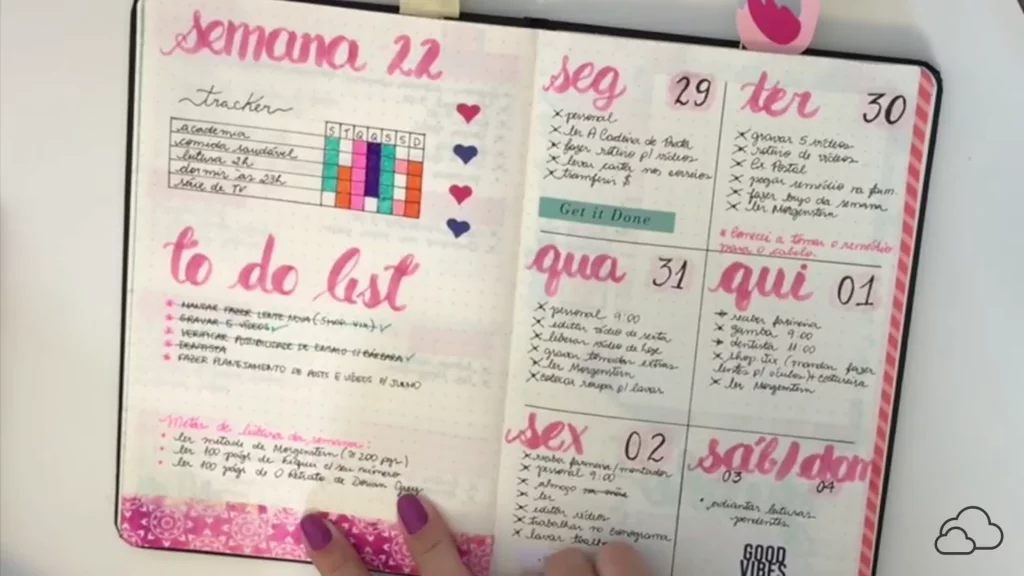 semana 22
tracker
S T Q Q S S D
academia
comida saudável
leitura 2h
dormir às 23h
série de TV
to do list
MANDAR FAZER LENTE NOVA (SHOP VIX)
GRAVAR 5 VÍDEOS
VERIFICAR POSSIBILIDADE DE C/ BÁRBARA
DENTISTA
FAZER PLANEJAMENTO DE POSTS E VÍDEOS P/ JUNHO
Metas de leitura da semana:
• ler metade de Morgenstern (≅ 200 pgs)
• ler 100 págs de
• ler 100 págs de O Retrato de Dorian Grey
seg 29
x personal
x ler A Cadeira de Prata
x fazer roteiro p/ vídeos
x levar cartas nos correios
x transferir $
Get it Done
ter 30
x gravar 5 vídeos
x roteiro de vídeos
x Cx Postal
x pegar remédio na farm.
x fazer bujo da semana
x ler Morgenstern
* Comecei a tomar o remédio
para o cabelo.
qua 31
x personal 9:00
x editar vídeo de sexta
x liberar vídeo de hoje
x gravar tomadas extras
x ler Morgenstern
x colocar roupa p/ lavar
qui 01
receber faxineira
x 9:00
dentista 11:00
x shop vix (mandar fazer
lentes p/ óculos) + costureira
x ler Morgenstern
sex 02
x receber faxineira/montador
x personal 9:00
x almoço
x ler
x editar vídeos
x trabalhar no cronograma
x lavar
sáb/dom
03 04
• adiantar leituras
pendentes
GOOD
VIBES